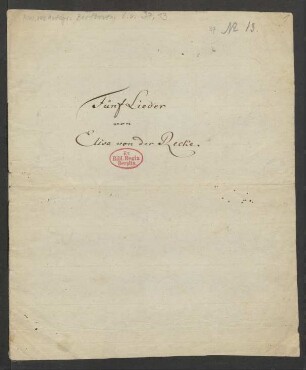 No 13.
Fünf Lieder
von
Elisa von der Recke.
Ex
Bibl. Regia
Berolin.